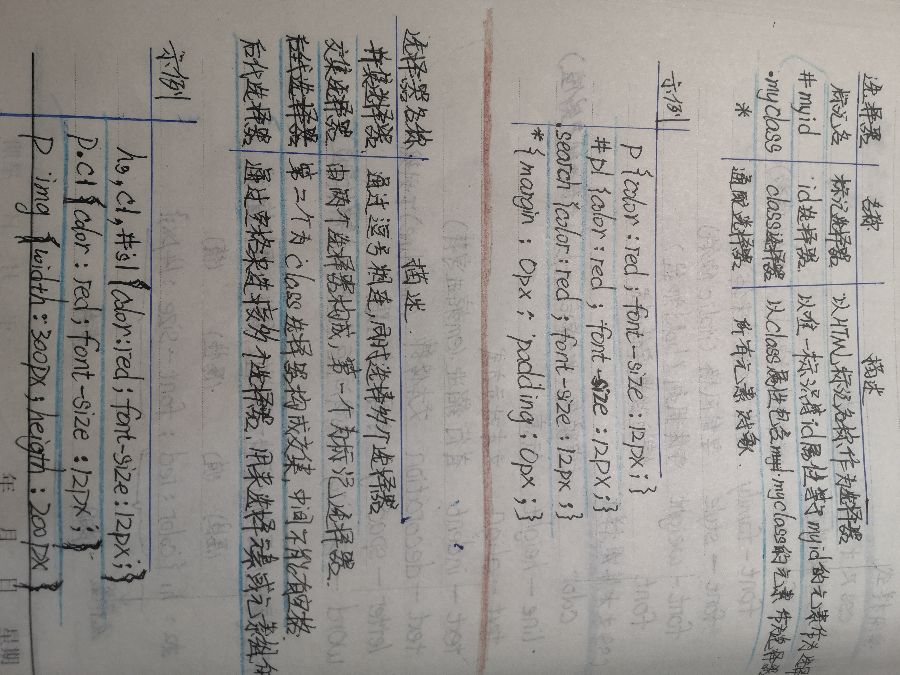 选择器 名称 描述
标记名 标记选择器 以HTML标记名称作为选择器
#myid id选择器 以唯一标识着id属性等于myid的元素作为选择器
.myclass class选择器 以class属性包含myclass的元素作为选择器
* 通配选择器 所有元素对象
示例
p {color:red; font-size:12px;}
#p1 {color:red; font-size:12px;}
.search {color:red; font-size:12px;}
* {margin:0px; padding:0px;}
选择器名称 描述
并集选择器 通过逗号相连,同时选择多个选择器
交集选择器 由两个选择器构成,第一个为标记选择器
第二个为class选择器构成交集,中间不能有空格
后代选择器 通过空格来选择多个选择器,用来选择元素或元素组的
示例
h3,c1,#s1{color:red; font-size:12px;}
p.c1{color:red; font-size:12px;}
p img {width:300px; heigth:200px}
年 月 日 星期